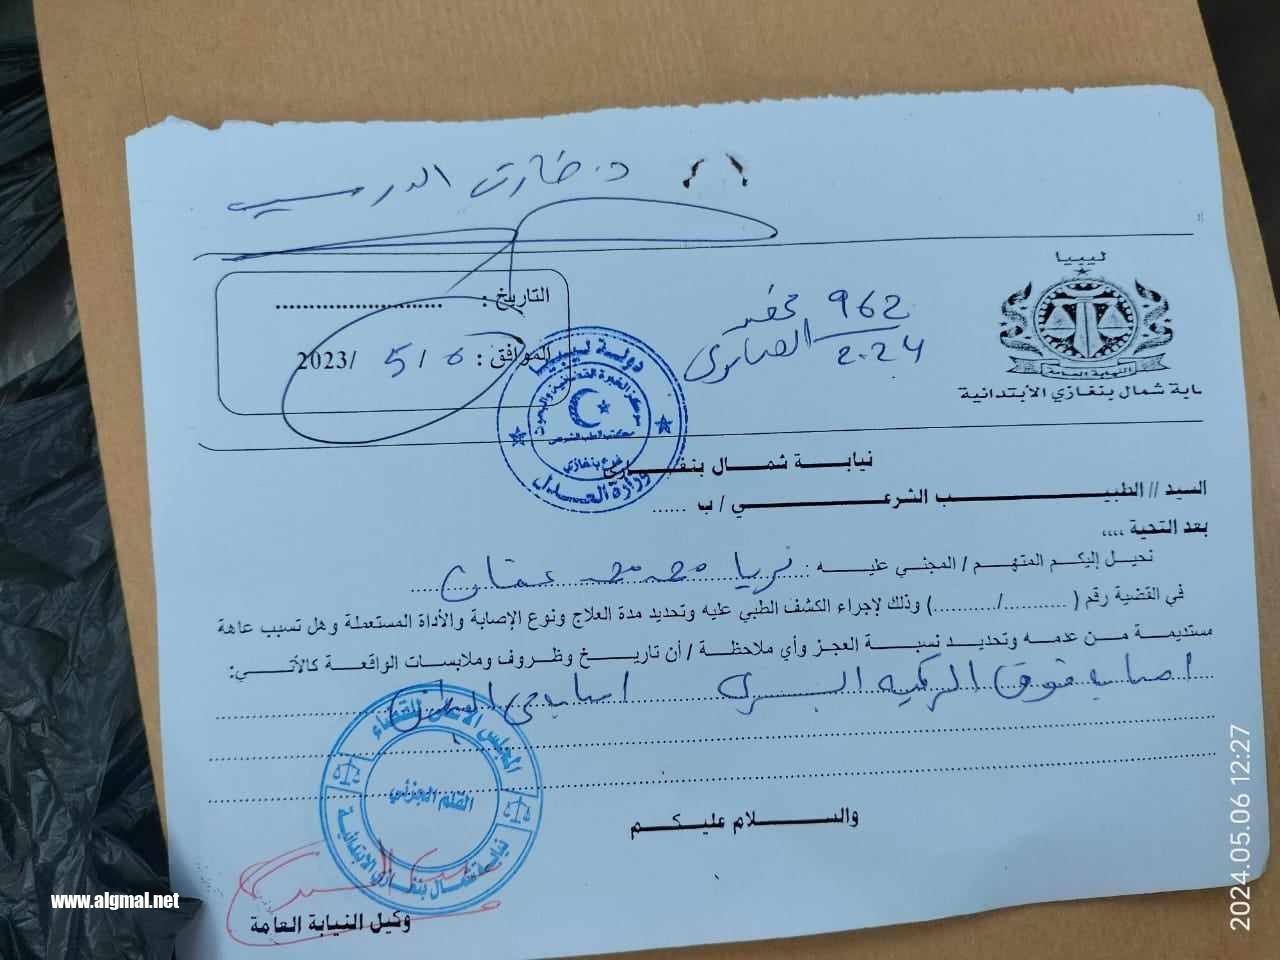 د. طارق الدرسي
ليبيا
النيابة العامة
نيابة شمال بنغازي الأبتدائية
962 محضر
2.24 الصابري
التاريخ : ..........................
الموافق : 5 / 5 /2023
دولة ليبيا
مركز الخبرة القضائية والبحوث
مكتب الطب الشرعي
فرع بنغازي
وزارة العدل
نيابة شمال بنغازي
السيد // الطبيب الشرعي / ب ......
بعد التحية ،،،،
نحيل إليكم المتهم / المجني عليه :
في القضية رقم ( ............/...........) وذلك لإجراء الكشف الطبي عليه وتحديد مدة العلاج ونوع الإصابة والأداة المستعملة وهل تسبب عاهة
مستديمة من عدمه وتحديد نسبة العجز وأي ملاحظة / أن تاريخ وظروف وملابسات الواقعة كالأتي:
اصابه فوق الركبه اليسرى
المجلس الأعلى للقضاء
القلم الجزئي
نيابة شمال بنغازي الابتدائية
والسلام عليكم
وكيل النيابة العامة
www.algmal.net
2024.05.06 12:27